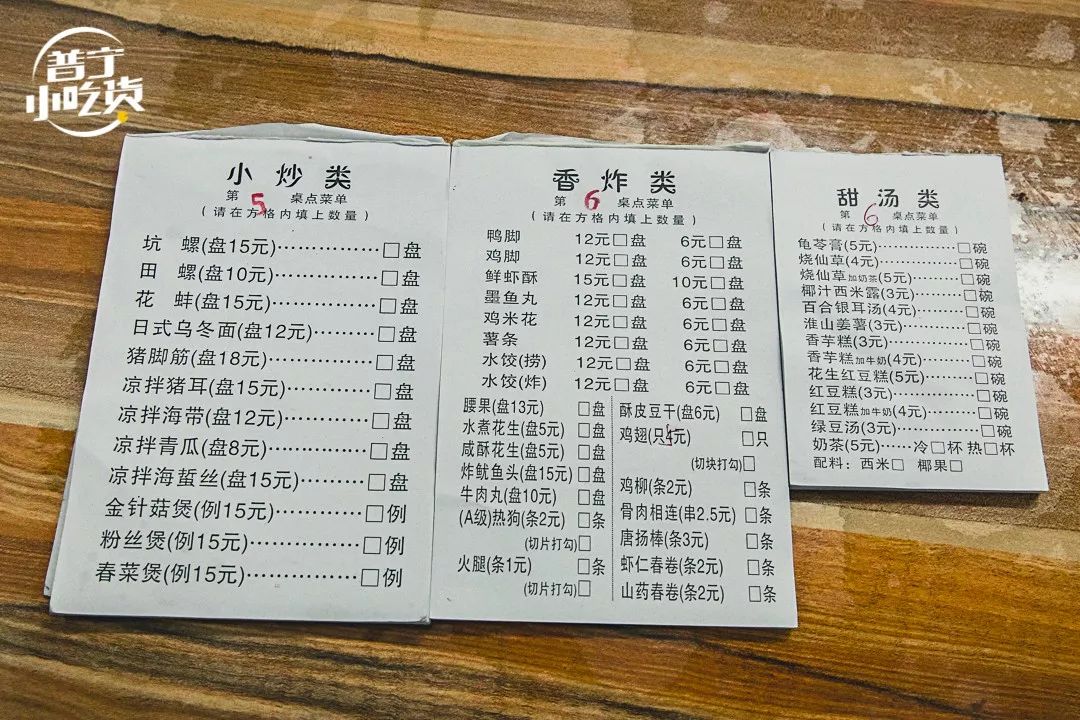 普宁
小吃货
小炒类
第5桌点菜单
(请在方格内填上数量)
坑 螺(盘15元)……………□盘
田 螺(盘10元)……………□盘
花 蚌(盘15元)……………□盘
日式乌冬面(盘12元)………□盘
猪脚筋(盘18元)……………□盘
凉拌猪耳(盘15元)…………□盘
凉拌海带(盘12元)…………□盘
凉拌青瓜(盘8元)……………□盘
凉拌海蜇丝(盘15元)………□盘
金针菇煲(例15元)…………□例
粉丝煲(例15元)……………□例
春菜煲(例15元)……………□例
香炸类
第6桌点菜单
(请在方格内填上数量)
鸭脚 12元□盘 6元□盘
鸡脚 12元□盘 6元□盘
鲜虾酥 15元□盘 10元□盘
墨鱼丸 12元□盘 6元□盘
鸡米花 12元□盘 6元□盘
薯条 12元□盘 6元□盘
水饺(捞) 12元□盘 6元□盘
水饺(炸) 12元□盘 6元□盘
腰果(盘13元) □盘
水煮花生(盘5元) □盘
咸酥花生(盘5元) □盘
炸鱿鱼头(盘15元) □盘
牛肉丸(盘10元) □盘
(A级)热狗(条2元) □条
(切片打勾)□
火腿(条1元) □条
(切片打勾)□
酥皮豆干(盘6元) □盘
鸡翅(只元) □只
(切块打勾)□
鸡柳(条2元) □条
骨肉相连(串2.5元) □条
唐扬棒(条3元) □条
虾仁春卷(条2元) □条
山药春卷(条2元) □条
甜汤类
第6桌点菜单
(请在方格内填上数量)
龟苓膏(5元)…………□碗
烧仙草(4元)…………□碗
烧仙草加奶茶(5元)……□碗
椰汁西米露(3元)………□碗
百合银耳汤(4元)………□碗
淮山姜薯(3元)…………□碗
香芋糕(3元)……………□碗
香芋糕加牛奶(4元)……□碗
花生红豆糕(5元)………□碗
红豆糕(3元)……………□碗
红豆糕加牛奶(4元)……□碗
绿豆汤(3元)……………□碗
奶茶(5元)……冷□杯 热□杯
配料：西米□ 椰果□